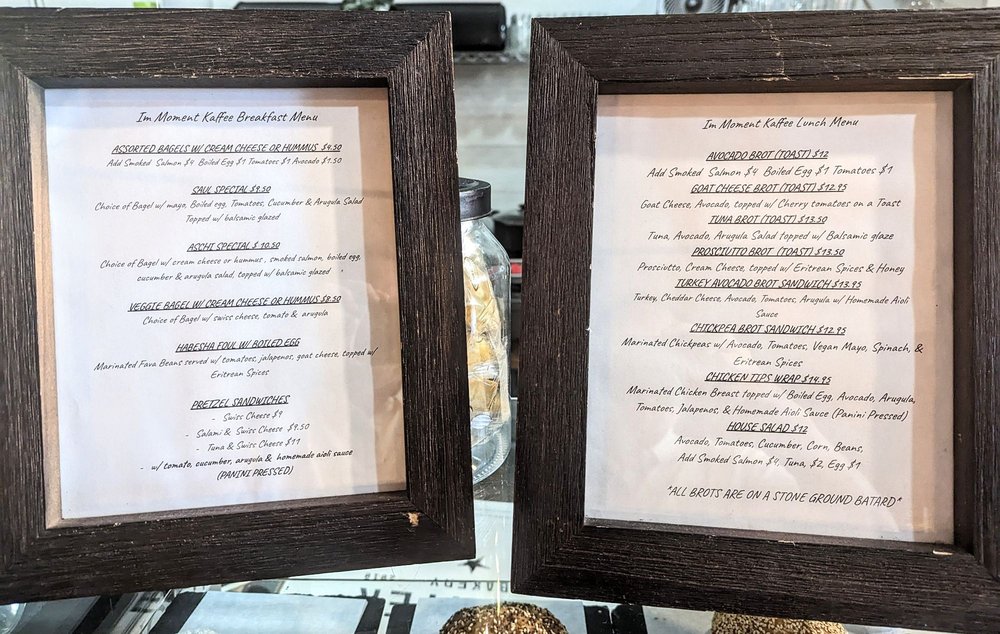 Im Moment Kaffee Breakfast Menu
ASSORTED BAGELS W/ CREAM CHEESE OR HUMMUS $4.50
Add Smoked Salmon $4 Boiled Egg $1 Tomatoes $1 Avocado $1.50
SAUL SPECIAL $9.50
Choice of Bagel w/ mayo, Boiled egg, Tomatoes, Cucumber & Arugula Salad
Topped w/ balsamic glazed
ASCHI SPECIAL $ 10.50
Choice of Bagel w/ cream cheese or hummus , smoked salmon, boiled egg,
cucumber & arugula salad, topped w/ balsamic glazed
VEGGIE BAGEL W/ CREAM CHEESE OR HUMMUS $8.50
Choice of Bagel w/ swiss cheese, tomato & arugula
HABESHA FOUL W/ BOILED EGG
Marinated Fava Beans served w/ tomatoes, jalapenos, goat cheese, topped w/
Eritrean Spices
PRETZEL SANDWICHES
- Swiss Cheese $9
- Salami & Swiss Cheese $9.50
- Tuna & Swiss Cheese $11
- w/ tomato, cucumber, arugula & homemade aioli sauce
(PANINI PRESSED)
Im Moment Kaffee Lunch Menu
AVOCADO BROT (TOAST) $12
Add Smoked Salmon $4 Boiled Egg $1 Tomatoes $1
GOAT CHEESE BROT (TOAST) $12.95
Goat Cheese, Avocado, topped w/ Cherry tomatoes on a Toast
TUNA BROT (TOAST) $13.50
Tuna, Avocado, Arugula Salad topped w/ Balsamic glaze
PROSCIUTTO BROT (TOAST) $13.50
Prosciutto, Cream Cheese, topped w/ Eritrean Spices & Honey
TURKEY AVOCADO BROT SANDWICH $13.95
Turkey, Cheddar Cheese, Avocado, Tomatoes, Arugula w/ Homemade Aioli
Sauce
CHICKPEA BROT SANDWICH $12.95
Marinated Chickpeas w/ Avocado, Tomatoes, Vegan Mayo, Spinach, &
Eritrean Spices
CHICKEN TIPS WRAP $14.95
Marinated Chicken Breast topped w/ Boiled Egg, Avocado, Arugula,
Tomatoes, Jalapenos, & Homemade Aioli Sauce (Panini Pressed)
HOUSE SALAD $12
Avocado, Tomatoes, Cucumber, Corn, Beans,
Add Smoked Salmon $4, Tuna, $2, Egg $1
*ALL BROTS ARE ON A STONE GROUND BATARD*